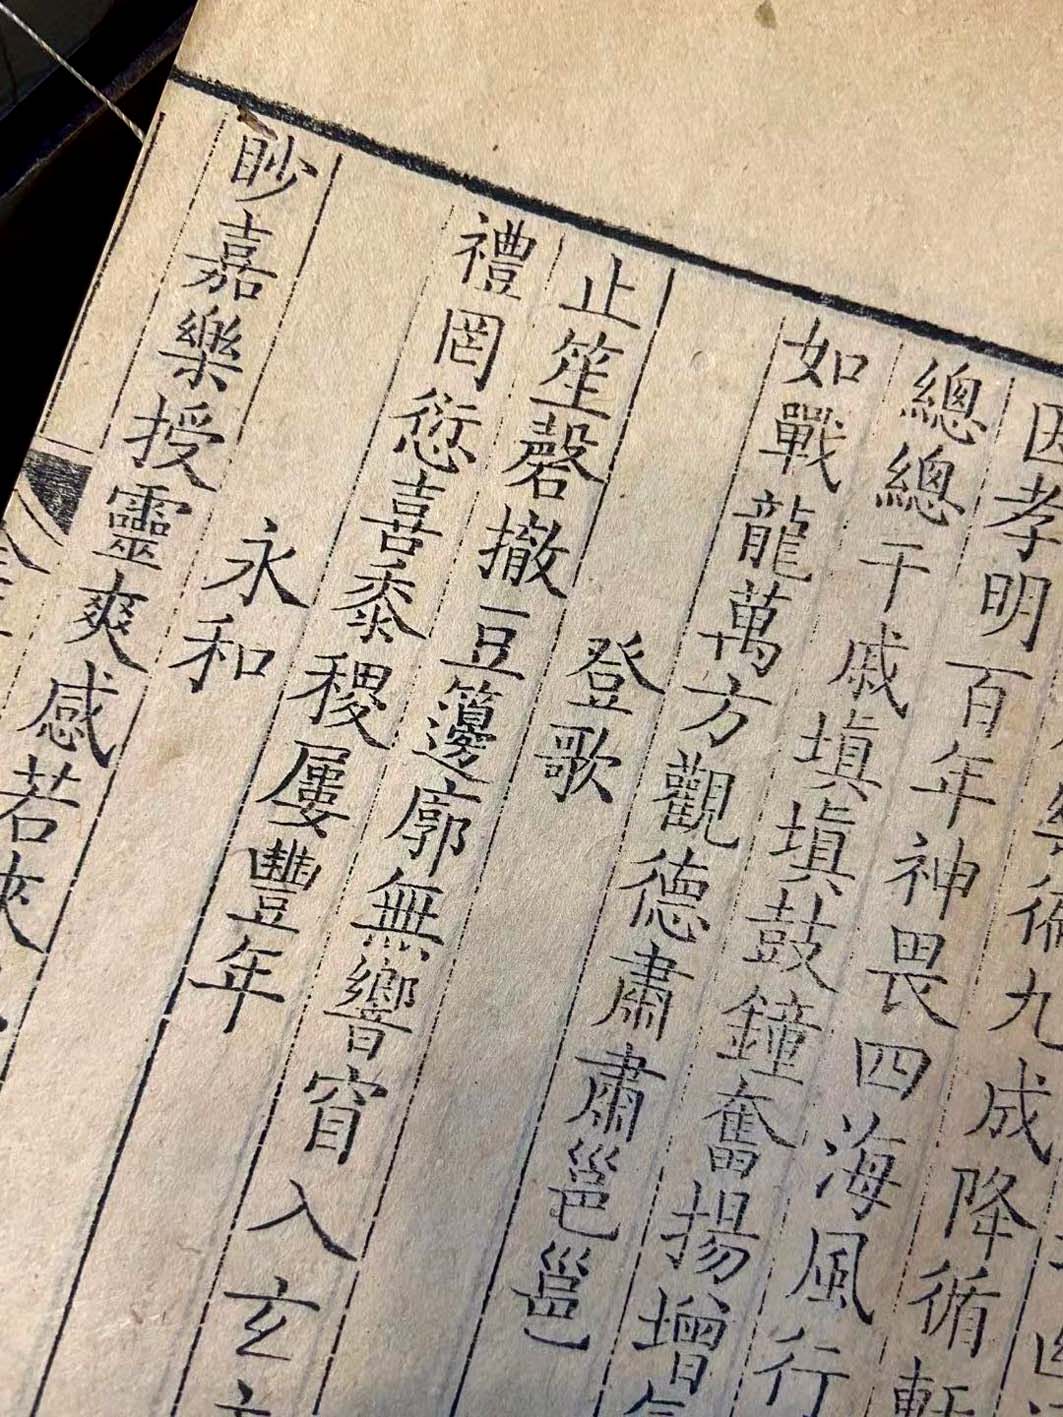 術九成降循軒
因孝明百年神畏四海風行
總總干戚填填鼓鐘奮揚增
如戰龍萬方觀德肅肅邕邕
登歌
止笙磬撤豆籩廓無響窅入玄
禮罔愆喜黍稷屢豐年
永和
眇嘉樂授靈爽感若